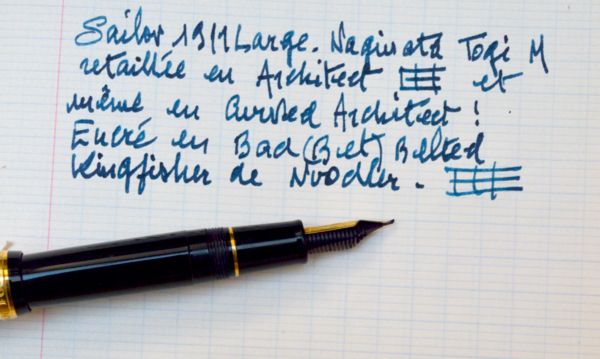 Sailor 1911 Large. Naginata Togi M
retaillée en Architect et
même en Cursed Architect !
Encré en Bad (Bet) Belted
Kingfisher de Noodler.